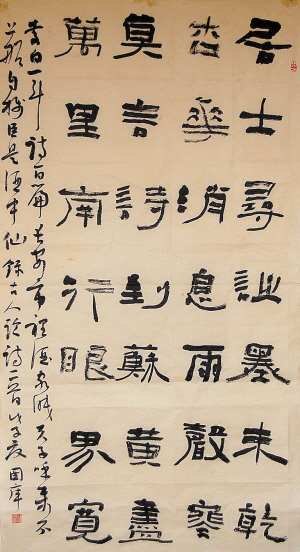 居士尋詩墨未乾
杏華消息雨聲寒
莫言詩到蘇黃盡
萬里南行眼界寬
李白一斗詩百篇長安市裡酒家眠天子呼來不
上船自稱臣是酒中仙錄古人論詩二首戊子夏國庠